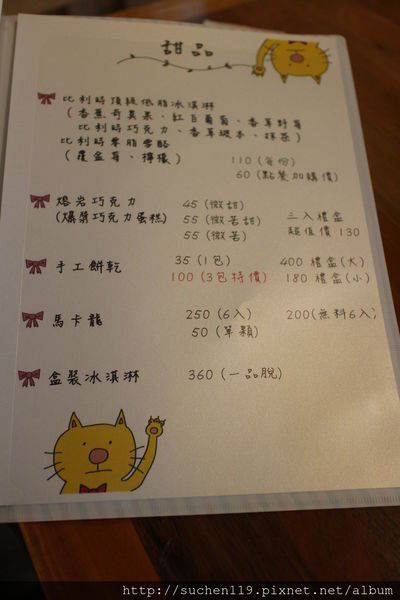 甜品
比利時頂級低脂冰淇淋
(香蕉奇異果、紅白葡萄、香草野莓
比利時巧克力、香草堤本、抹茶)
比利時零脂雪酪
(覆盆莓、檸檬)
110 (每份)
60 (點餐加購價)
熔岩巧克力 45 (微甜)
(爆漿巧克力蛋糕) 55 (微苦甜) 三入禮盒
55 (微苦) 超值價 130
手工餅乾 35 (1包) 400 禮盒(大)
100 (3包特價) 180 禮盒(小)
馬卡龍 250 (6入) 200(無料6入)
50 (單顆)
盒裝冰淇淋 360 (一品脫)
http://suchen119.pixnet.net/album